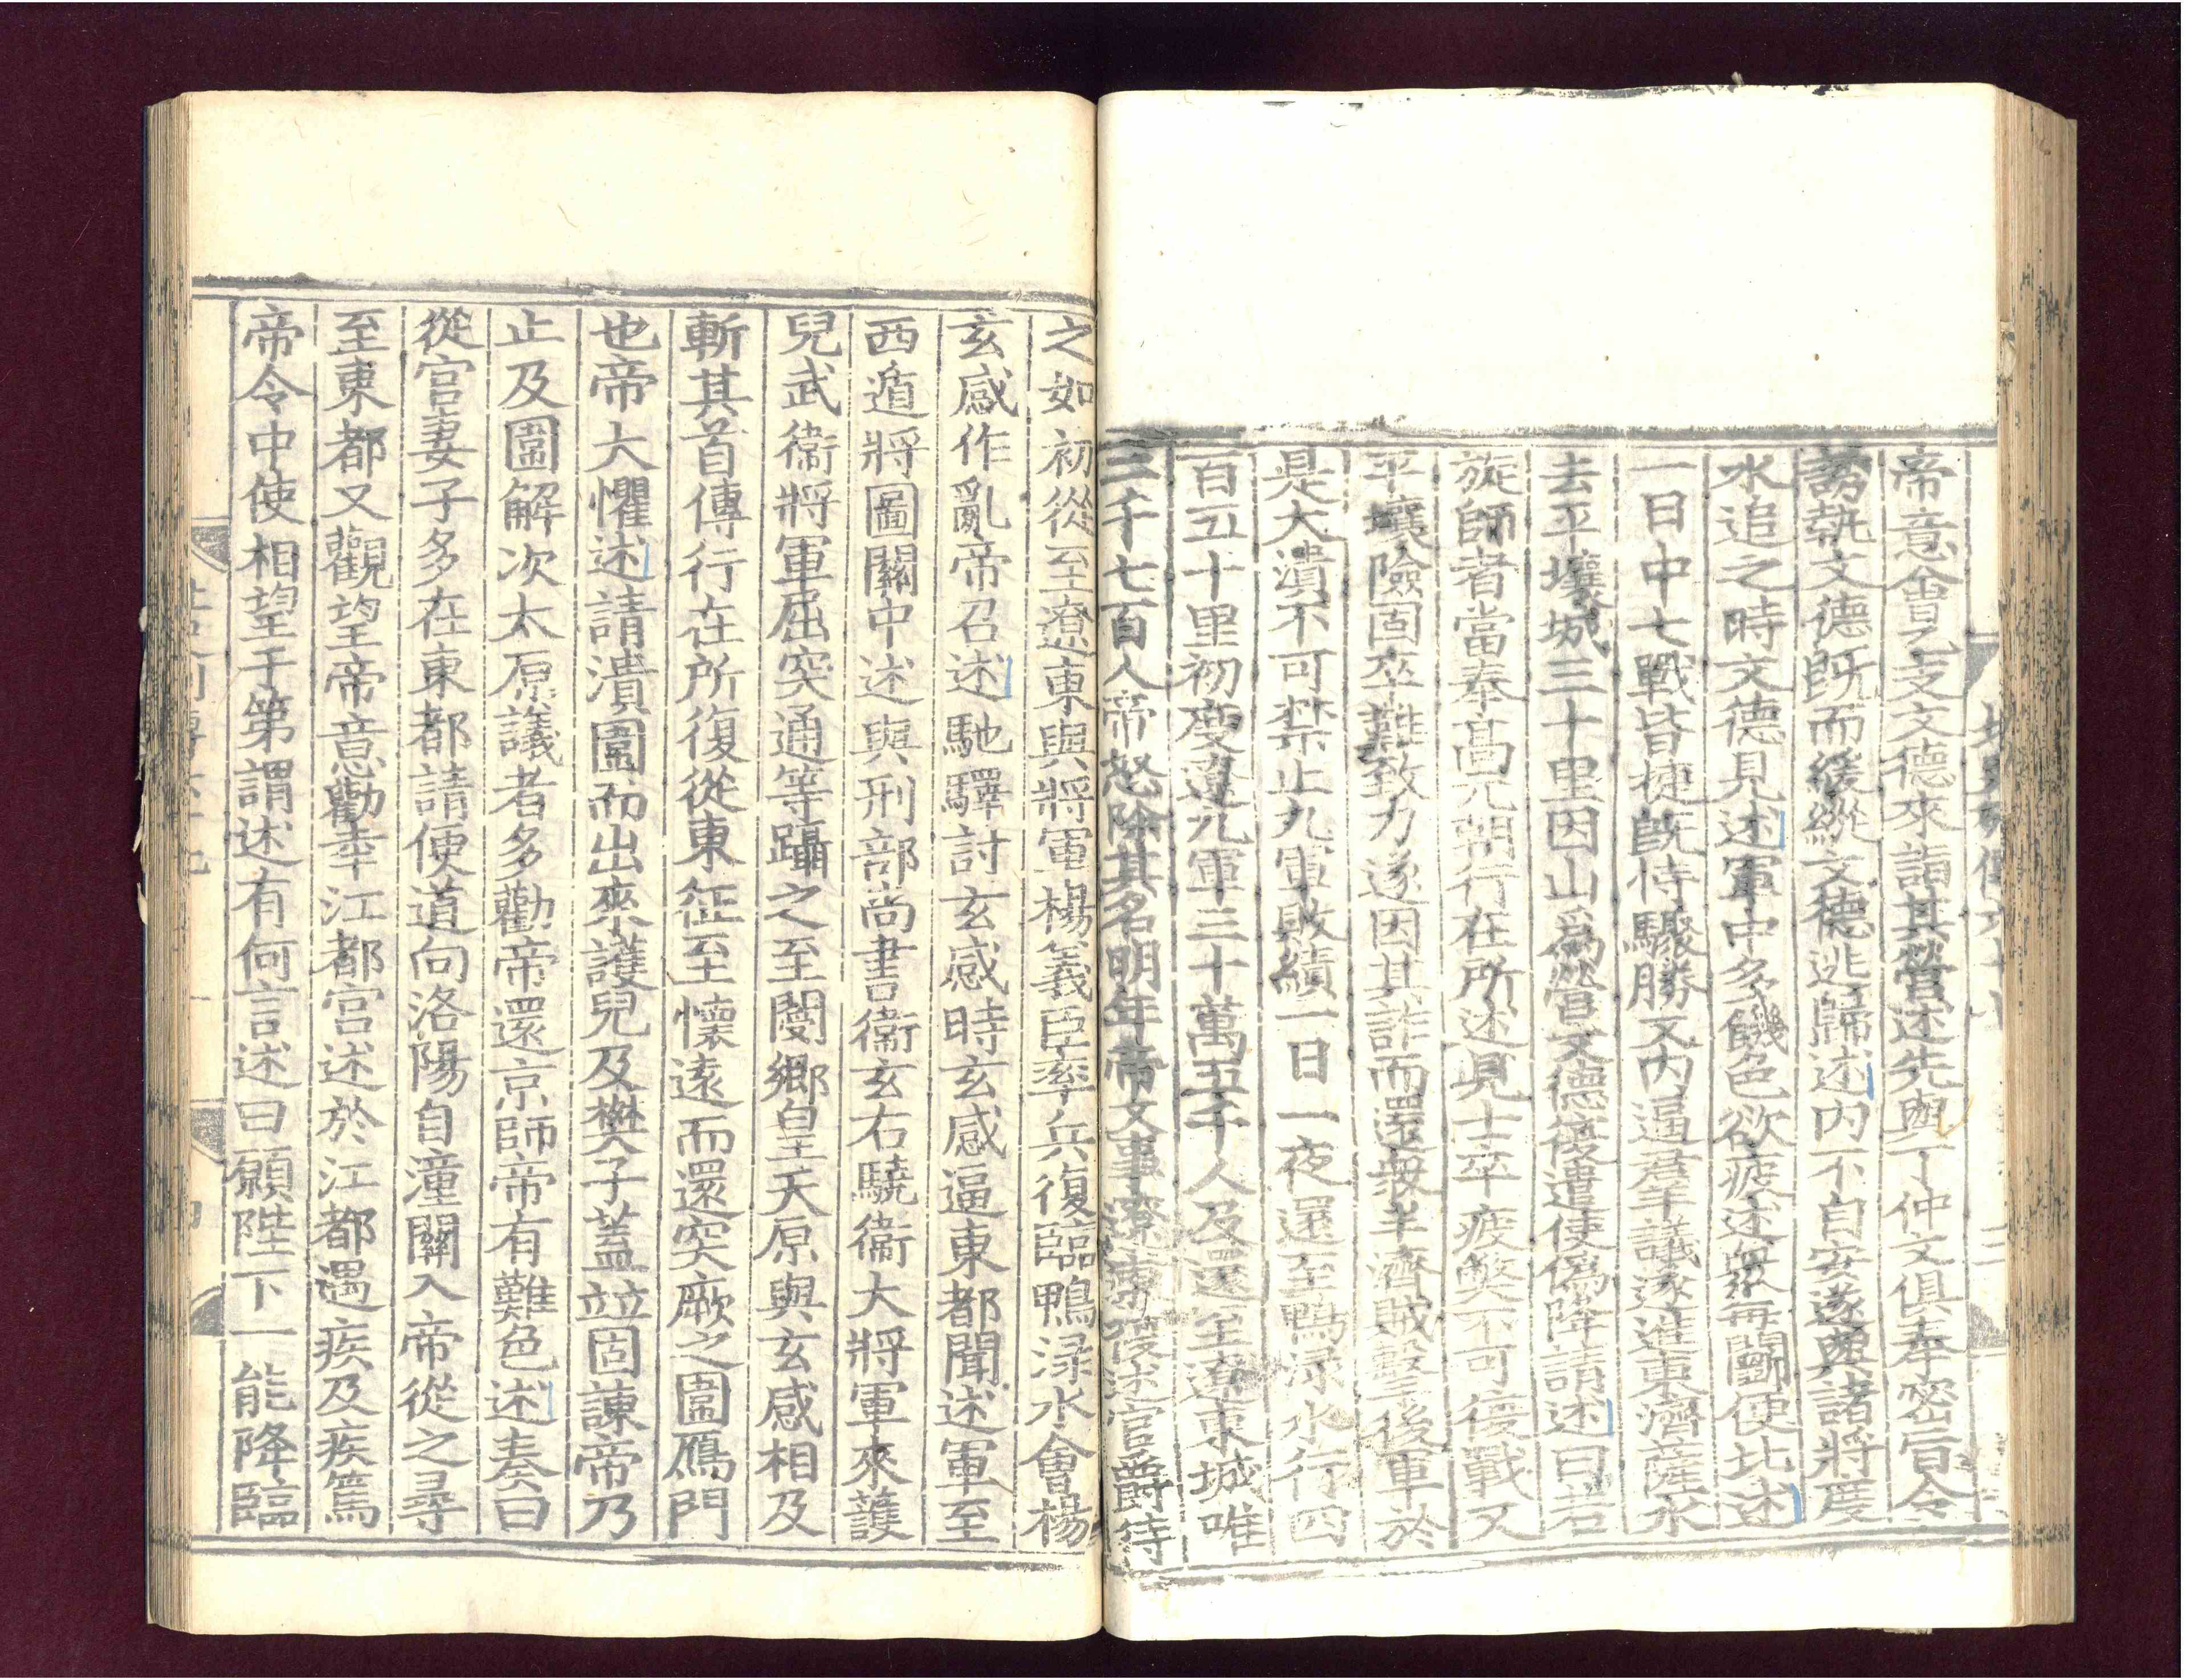 帝意會乙支文德來詣其營述先與丁仲文俱奉密旨令
誘執文德旣而緩縱文德逃歸述內不自安遂與諸將度
水追之時文德見述軍中多饑色欲疲述衆每鬭便北述
一日中七戰皆捷旣恃驟勝又內逼羣議遂進東濟薩水
去平壤城三十里因山爲營文德復遣使僞降請述曰若
旋師者當奉高元朝行在所述見士卒疲獘不可復戰又
平壤險固卒難致力遂因其詐而還衆半濟賊擊後軍於
是大潰不可禁止九軍敗績一日一夜還至鴨淥水行四
百五十里初度遼九軍三十萬五千人及還至遼東城唯
二千七百人帝怒除其名明年帝文事遼東復述官爵待
之如初從至遼東與將軍楊義臣率兵復臨鴨淥水會楊
玄感作亂帝召述馳驛討玄感時玄感逼東都聞述軍至
西遁將圖關中述與刑部尚書衞玄右驍衞大將軍來護
兒武衞將軍屈突通等躡之至閿鄉皇天原與玄感相及
斬其首傳行在所復從東征至懷遠而還突厥之圍鴈門
也帝大懼述請潰圍而出來護兒及樊子蓋竝固諫帝乃
止及圍解次太原議者多勸帝還京師帝有難色述奏曰
從官妻子多在東都請便道向洛陽自潼關入帝從之尋
至東都又觀望帝意勸幸江都宮述於江都遇疾及疾篤
帝令中使相望于第謂述有何言述曰願陛下一能降臨